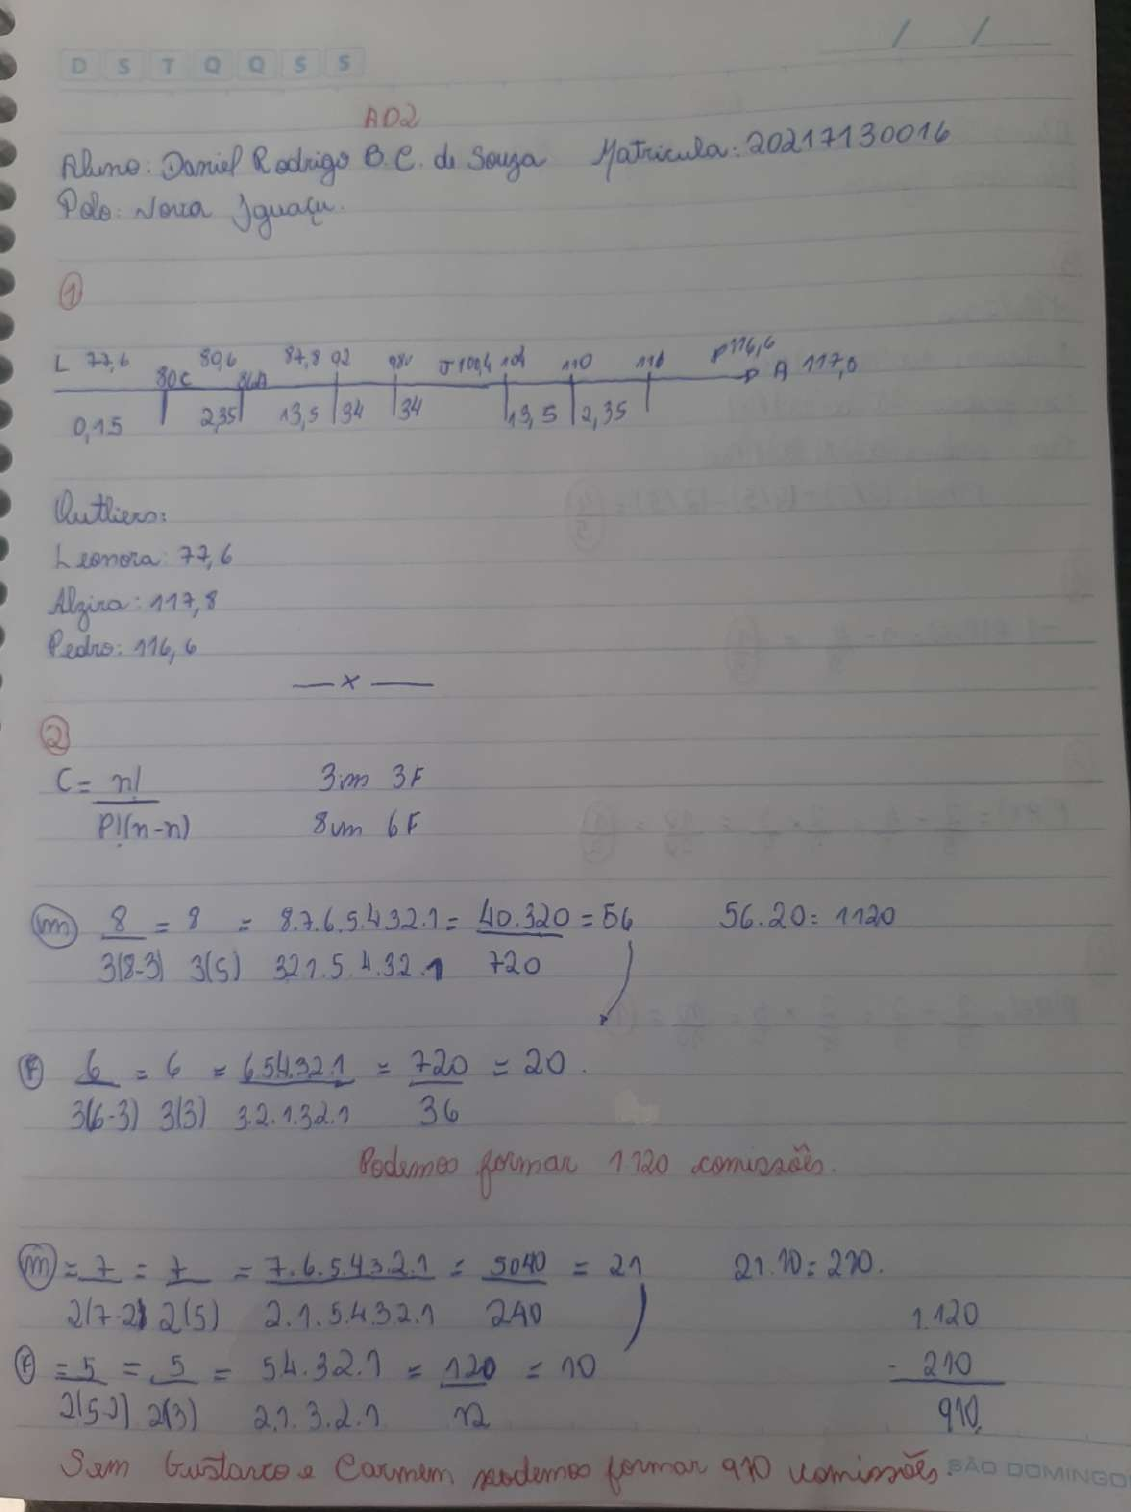 D S T Q Q S S
/ /
AD2
Aluno: Daniel Rodrigo B. C. de Souza Matricula: 20217130016
Polo: Nova Iguaçu.
1
L 77,6 80,6 87,8 92 98 J 100,4 104 110 116 P 116,6
80C 86A A 117,8
0,15 2,35 13,5 34 34 13,5 2,35
Outliers:
Leonora: 77,6
Alzira: 117,8
Pedro: 116,6
— x —
2
C = n! 3m 3F
P!(n-n) 8m 6F
m 8 = 8 = 8.7.6.5.4.3.2.1 = 40.320 = 56 56.20: 1120
3(8-3) 3(5) 3.2.1.5.4.3.2.1 720
F 6 = 6 = 6.5.4.3.2.1 = 720 = 20.
3(6-3) 3(3) 3.2.1.3.2.1 36
Podemos formar 1.120 comissões.
m = 7 = 7 = 7.6.5.4.3.2.1 = 5040 = 21 21.10: 210.
2(7-2) 2(5) 2.1.5.4.3.2.1 240 1.120
F = 5 = 5 = 5.4.3.2.1 = 120 = 10 - 210
2(5-2) 2(3) 2.1.3.2.1 12 910
Sem Gustavo e Carmem podemos formar 910 comissões.
SÃO DOMINGO